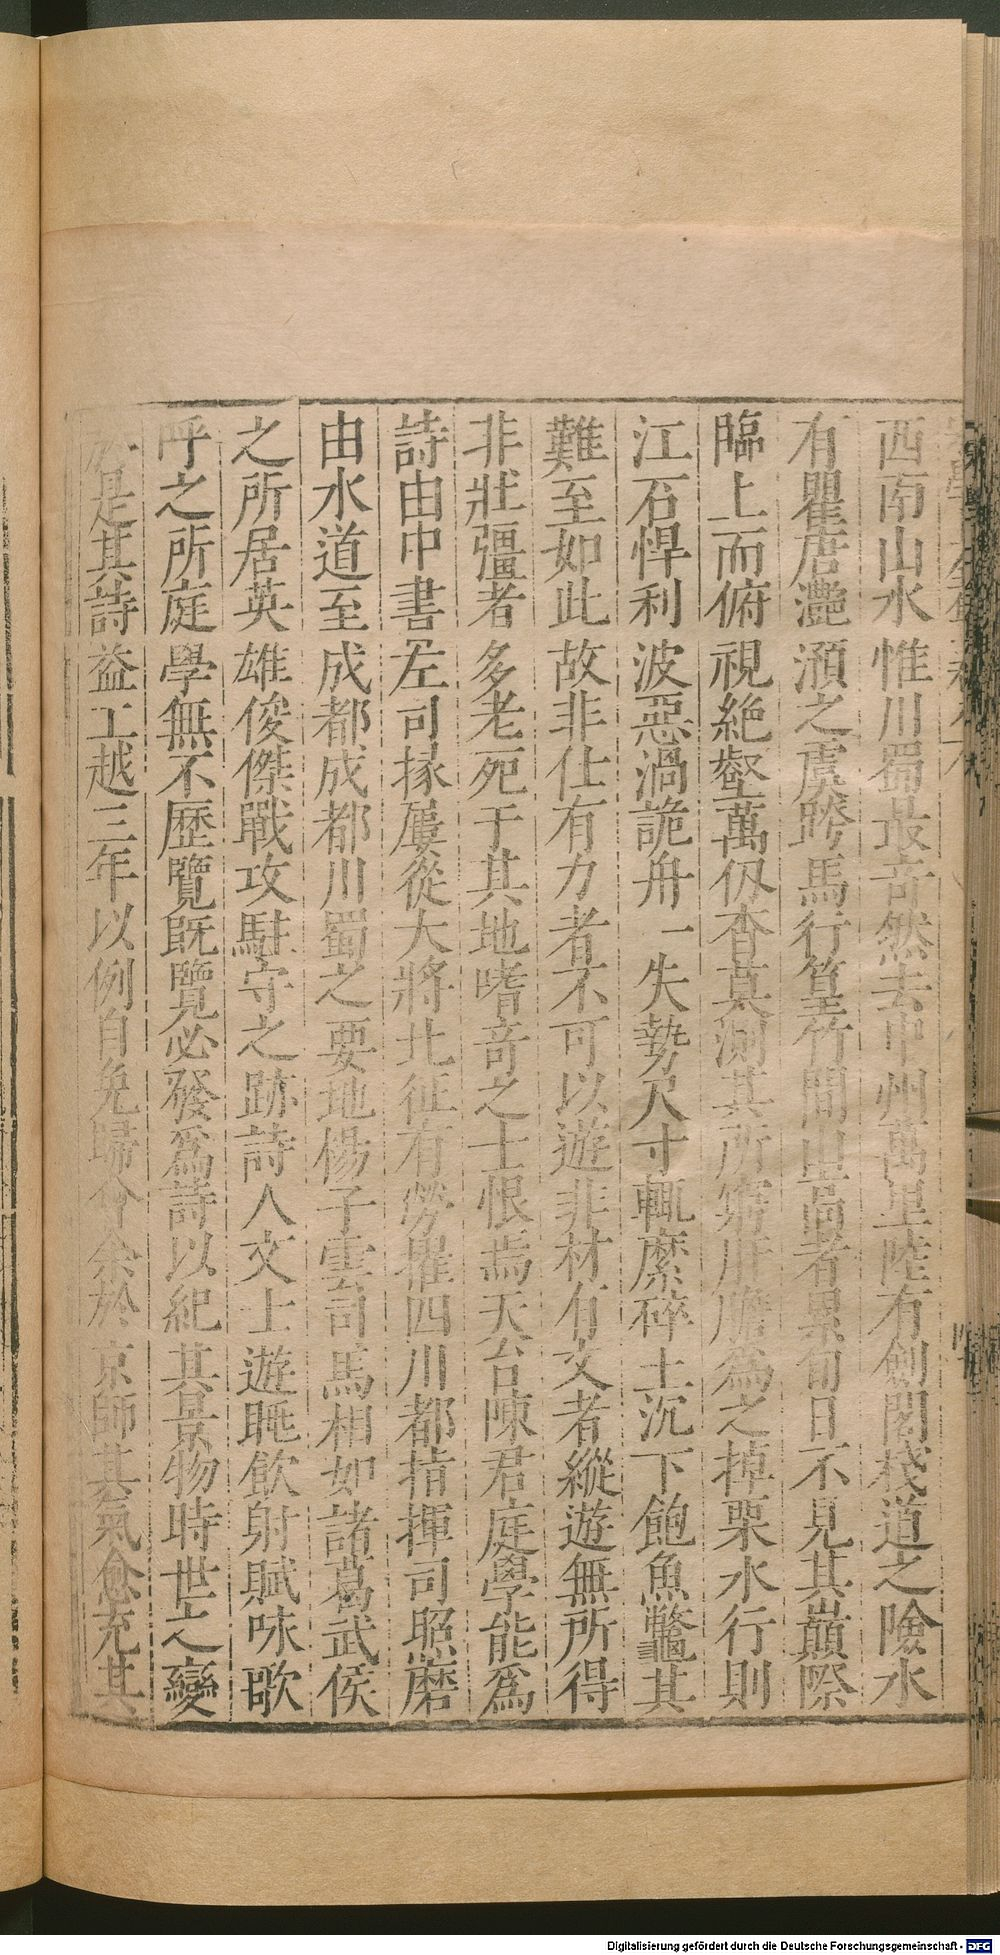 西南山水惟川蜀最奇然去中州萬里陸有劍閣棧道之險水
有瞿唐灔澦之虞跨馬行篁竹間山高者累旬日不見其巔際
臨上而俯視絕壑萬仞杳莫測其所窮肝膽為之掉栗水行則
江石悍利波惡渦詭舟一失勢尺寸輒糜碎土沉下飽魚鼈其
難至如此故非仕有力者不可以遊非材有文者縱遊無所得
非壯彊者多老死于其地嗜奇之士恨焉天台陳君庭學能為
詩由中書左司掾屢從大將北征有勞擢四川都指揮司照磨
由水道至成都成都川蜀之要地楊子雲司馬相如諸葛武侯
之所居英雄俊傑戰攻駐守之跡詩人文士遊眺飲射賦咏歌
呼之所庭學無不歷覽既覽必發為詩以紀其景物時世之變
於是其詩益工越三年以例自免歸會余於京師其氣愈充其
Digitalisierung gefördert durch die Deutsche Forschungsgemeinschaft - DFG